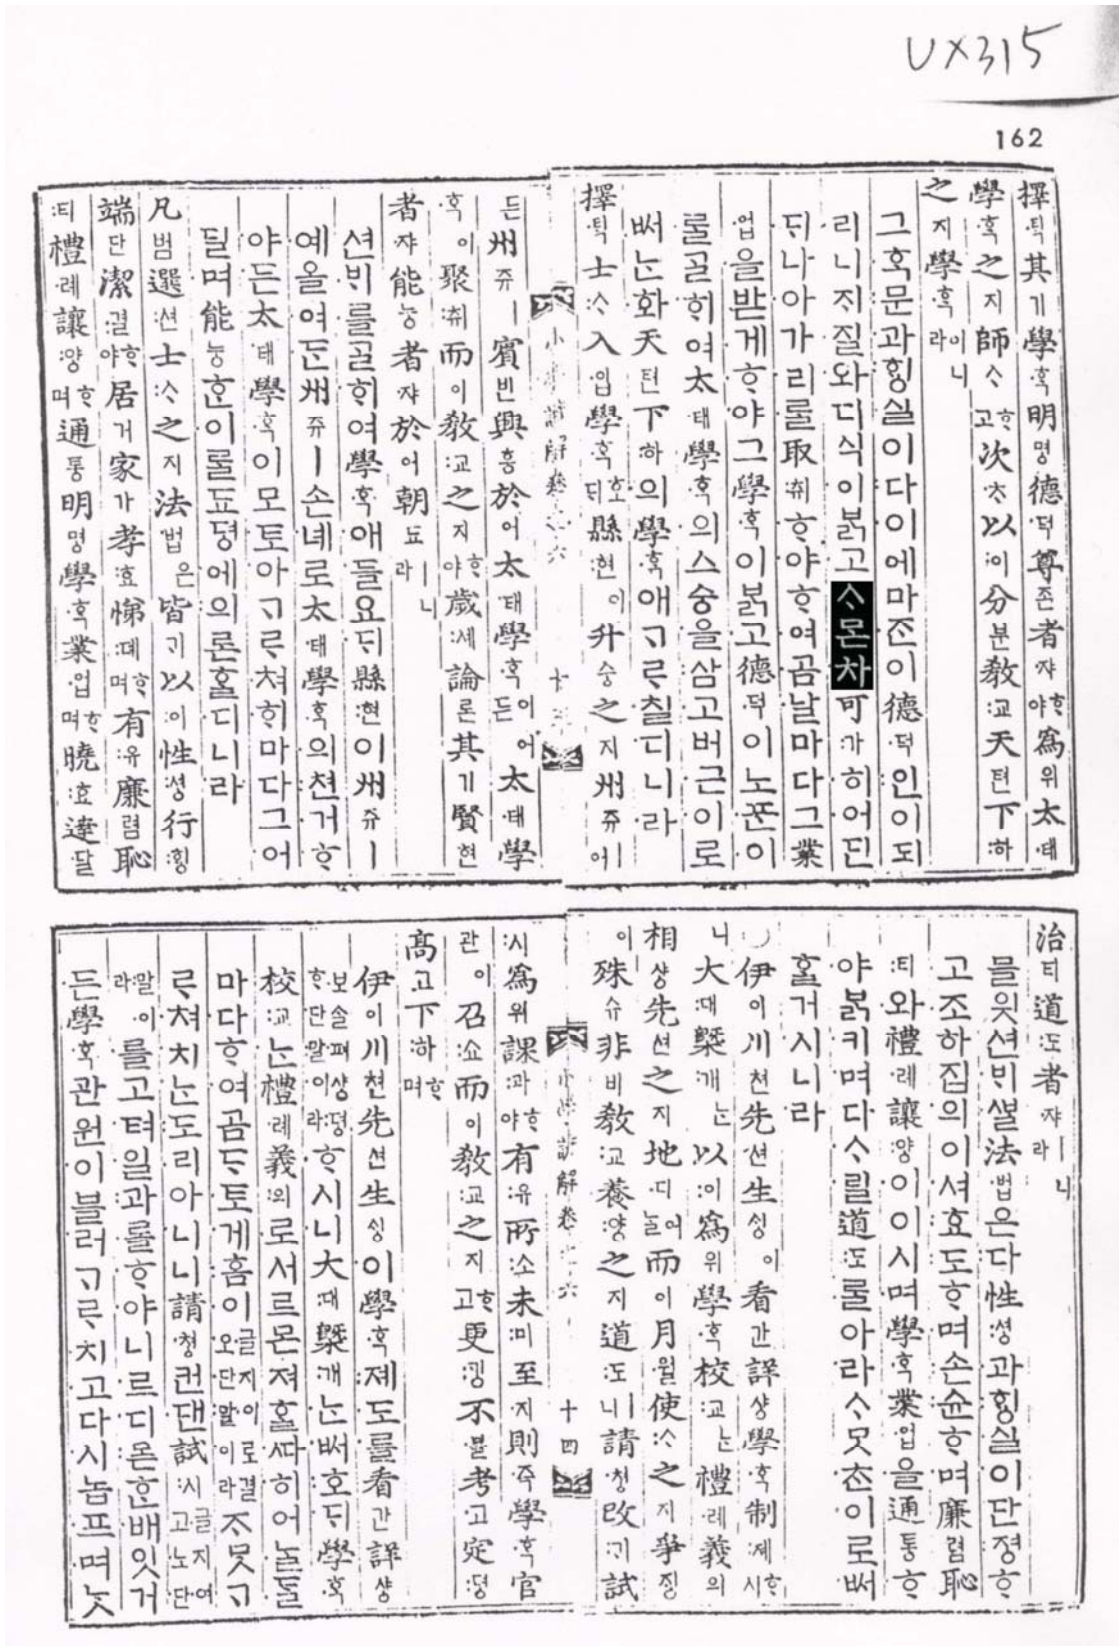 UX315
162
擇·ᄐᆡᆨ其기學·ᄒᆞᆨ明명德·덕尊존者쟈ᄒᆞ야爲위太·태
學·ᄒᆞᆨ之지師ᄉᆞᄒᆞ고次·ᄎᆞ以:이分분敎:교天텬下:하
之지學·ᄒᆞᆨ이니라
그ᄒᆞᆨ문과ᄒᆡᆼ실이다이에마ᄌᆞᆫ이德·덕인이되
리니ᄌᆡ질와디식이ᄇᆞᆰ고ᄉᆞᄆᆞᆺ차可·가히어딘
ᄃᆡ나아가리ᄅᆞᆯ取:ᄎᆔᄒᆞ야ᄒᆞ여곰날마다그業
·업을받게ᄒᆞ야그學·ᄒᆞᆨ이ᄇᆞᆰ고德·덕이노ᄑᆞᆫ이
ᄅᆞᆯᄀᆞᆯᄒᆡ여太·태學·ᄒᆞᆨ의스승을삼고버근이로
ᄡᅥᄂᆞᆫ화天텬下:하의學·ᄒᆞᆨ애ᄀᆞᄅᆞ칠디니라
擇·ᄐᆡᆨ士:ᄉᆞ入·입學·ᄒᆞᆨ호ᄃᆡ縣:현이升승之지州쥬ㅣ어
小學諺解卷之六
든州쥬ㅣ賓빈興흥於어太·태學·ᄒᆞᆨ이어든太·태學
·ᄒᆞᆨ이聚:ᄎᆔ而이敎:교之지ᄒᆞ야歲:셰論론其기賢현
者쟈能능者쟈於어朝됴ㅣ니라
션ᄇᆡ를ᄀᆞᆯᄒᆡ여學·ᄒᆞᆨ애들요ᄃᆡ縣:현이州쥬ㅣ
예올여ᄃᆞᆫ州쥬ㅣ손녜로太·태學·ᄒᆞᆨ의쳔거ᄒᆞ
야든太·태學·ᄒᆞᆨ이모토아ᄀᆞᄅᆞ쳐ᄒᆡ마다그어
딜며能능ᄒᆞᆫ이ᄅᆞᆯ됴뎡에의론홀디니라
凡범選:션士:ᄉᆞ之지法·법은皆ᄀᆡ以:이性:셩行:ᄒᆡᆼ
端단潔·결ᄒᆞ야居거家가孝:효悌:뎨ᄒᆞ며有:유廉렴恥
:티禮·례讓:양ᄒᆞ며通통明명學·ᄒᆞᆨ業·업ᄒᆞ며曉:효達·달
治티道:도者쟈ㅣ니라
믈읫션ᄇᆡᄲᅩᆯ法·법은다性:셩과ᄒᆡᆼ실이단졍ᄒᆞ
고조하집의이셔효도ᄒᆞ며손슌ᄒᆞ며廉렴恥
:티와禮·례讓:양이이시며學·ᄒᆞᆨ業·업을通통ᄒᆞ
야ᄇᆞᆰ키며다ᄉᆞ릴道:도ᄅᆞᆯ아라ᄉᆞᄆᆞᆺᄎᆞᆫ이로ᄡᅥ
홀거시니라
○伊이川쳔先션生ᄉᆡᆼ이看간詳샹學·ᄒᆞᆨ制:졔ᄒᆞ시
니大·대槩:개ᄂᆞᆫ以:이爲위學·ᄒᆞᆨ校:교ᄂᆞᆫ禮·례義의
相샹先션之지地·디어ᄂᆞᆯ而이月·월使:ᄉᆞ之지爭ᄌᆡᆼ
이殊슈非비敎:교養:양之지道:도ㅣ니請:쳥改:ᄀᆡ試
小學諺解卷之六 十四
:시爲위課·과ᄒᆞ야有:유所:소未:미至·지則·즉學·ᄒᆞᆨ官
관이召:쇼而이敎:교之지ᄒᆞ고更:ᄀᆡᆼ不·블考:고定:뎡
高고下:하ᄒᆞ며
伊이川쳔先션生ᄉᆡᆼ이學·ᄒᆞᆨ졔도를看간詳샹
보ᄉᆞᆯ펴샹뎡ᄒᆞ단말이라ᄒᆞ시니大·대槩:개ᄂᆞᆫᄡᅥ호ᄃᆡ學·ᄒᆞᆨ
校:교ᄂᆞᆫ禮·례義:의로서ᄅᆞ몬져홀ᄯᅡ히어ᄂᆞᆯᄃᆞᆯ
마다ᄒᆞ여곰ᄃᆞ토게홈이글지이로결오단말이라ᄌᆞ못ᄀᆞ
ᄅᆞ쳐치ᄂᆞᆫ도리아니니請·쳥컨댄試:시글지여고노단
말이라를고텨일과ᄅᆞᆯᄒᆞ야니르디몯ᄒᆞᆫ배잇거
든學·ᄒᆞᆨ관원이블러ᄀᆞᄅᆞ치고다시놉프며ᄂᆞᆺ